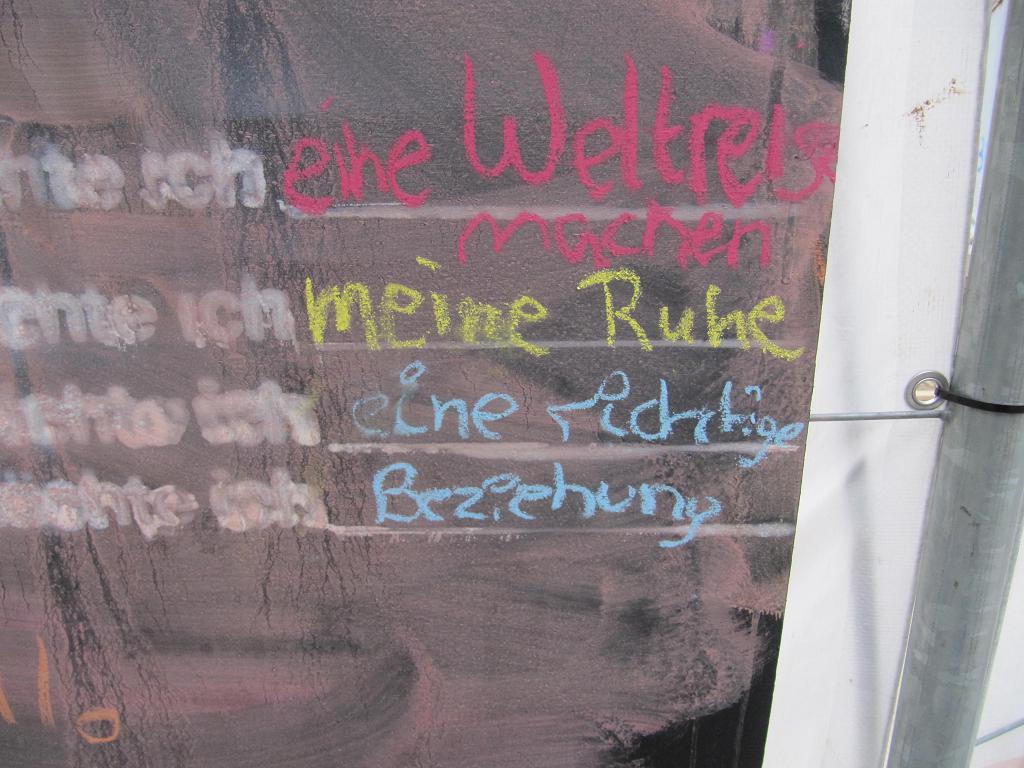 nte ich eine Weltreise
machen
chte ich meine Ruhe
chte ich eine richtige
öchte ich Beziehung
llo